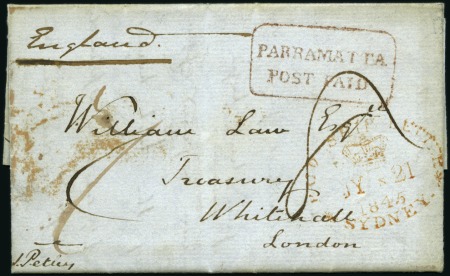 England.
PARRAMATTA
POST PAID
William Law Esqre
Treasury
Whitehall
London
JY 21
1845
SYDNEY